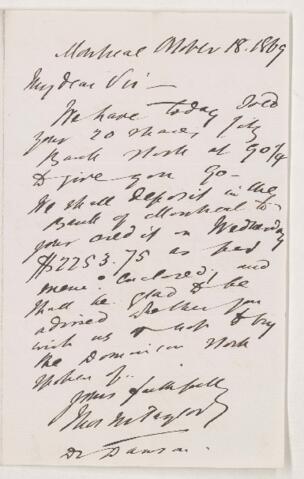 Montreal October 18. 1869
My dear Sir -
We have today sold
your 20 shares City
Bank Stock at 90 1/4
to give you 90 -
We shall deposit in the
Bank of Montreal to
your credit on Wednesday
$2253.75 as per
memo: enclosed, and
shall be glad to be
advised whether you
wish us or not to buy
the Dominion Stock
spoken of.
Yours faithfully
Thos M Taylor
Dr Dawson.